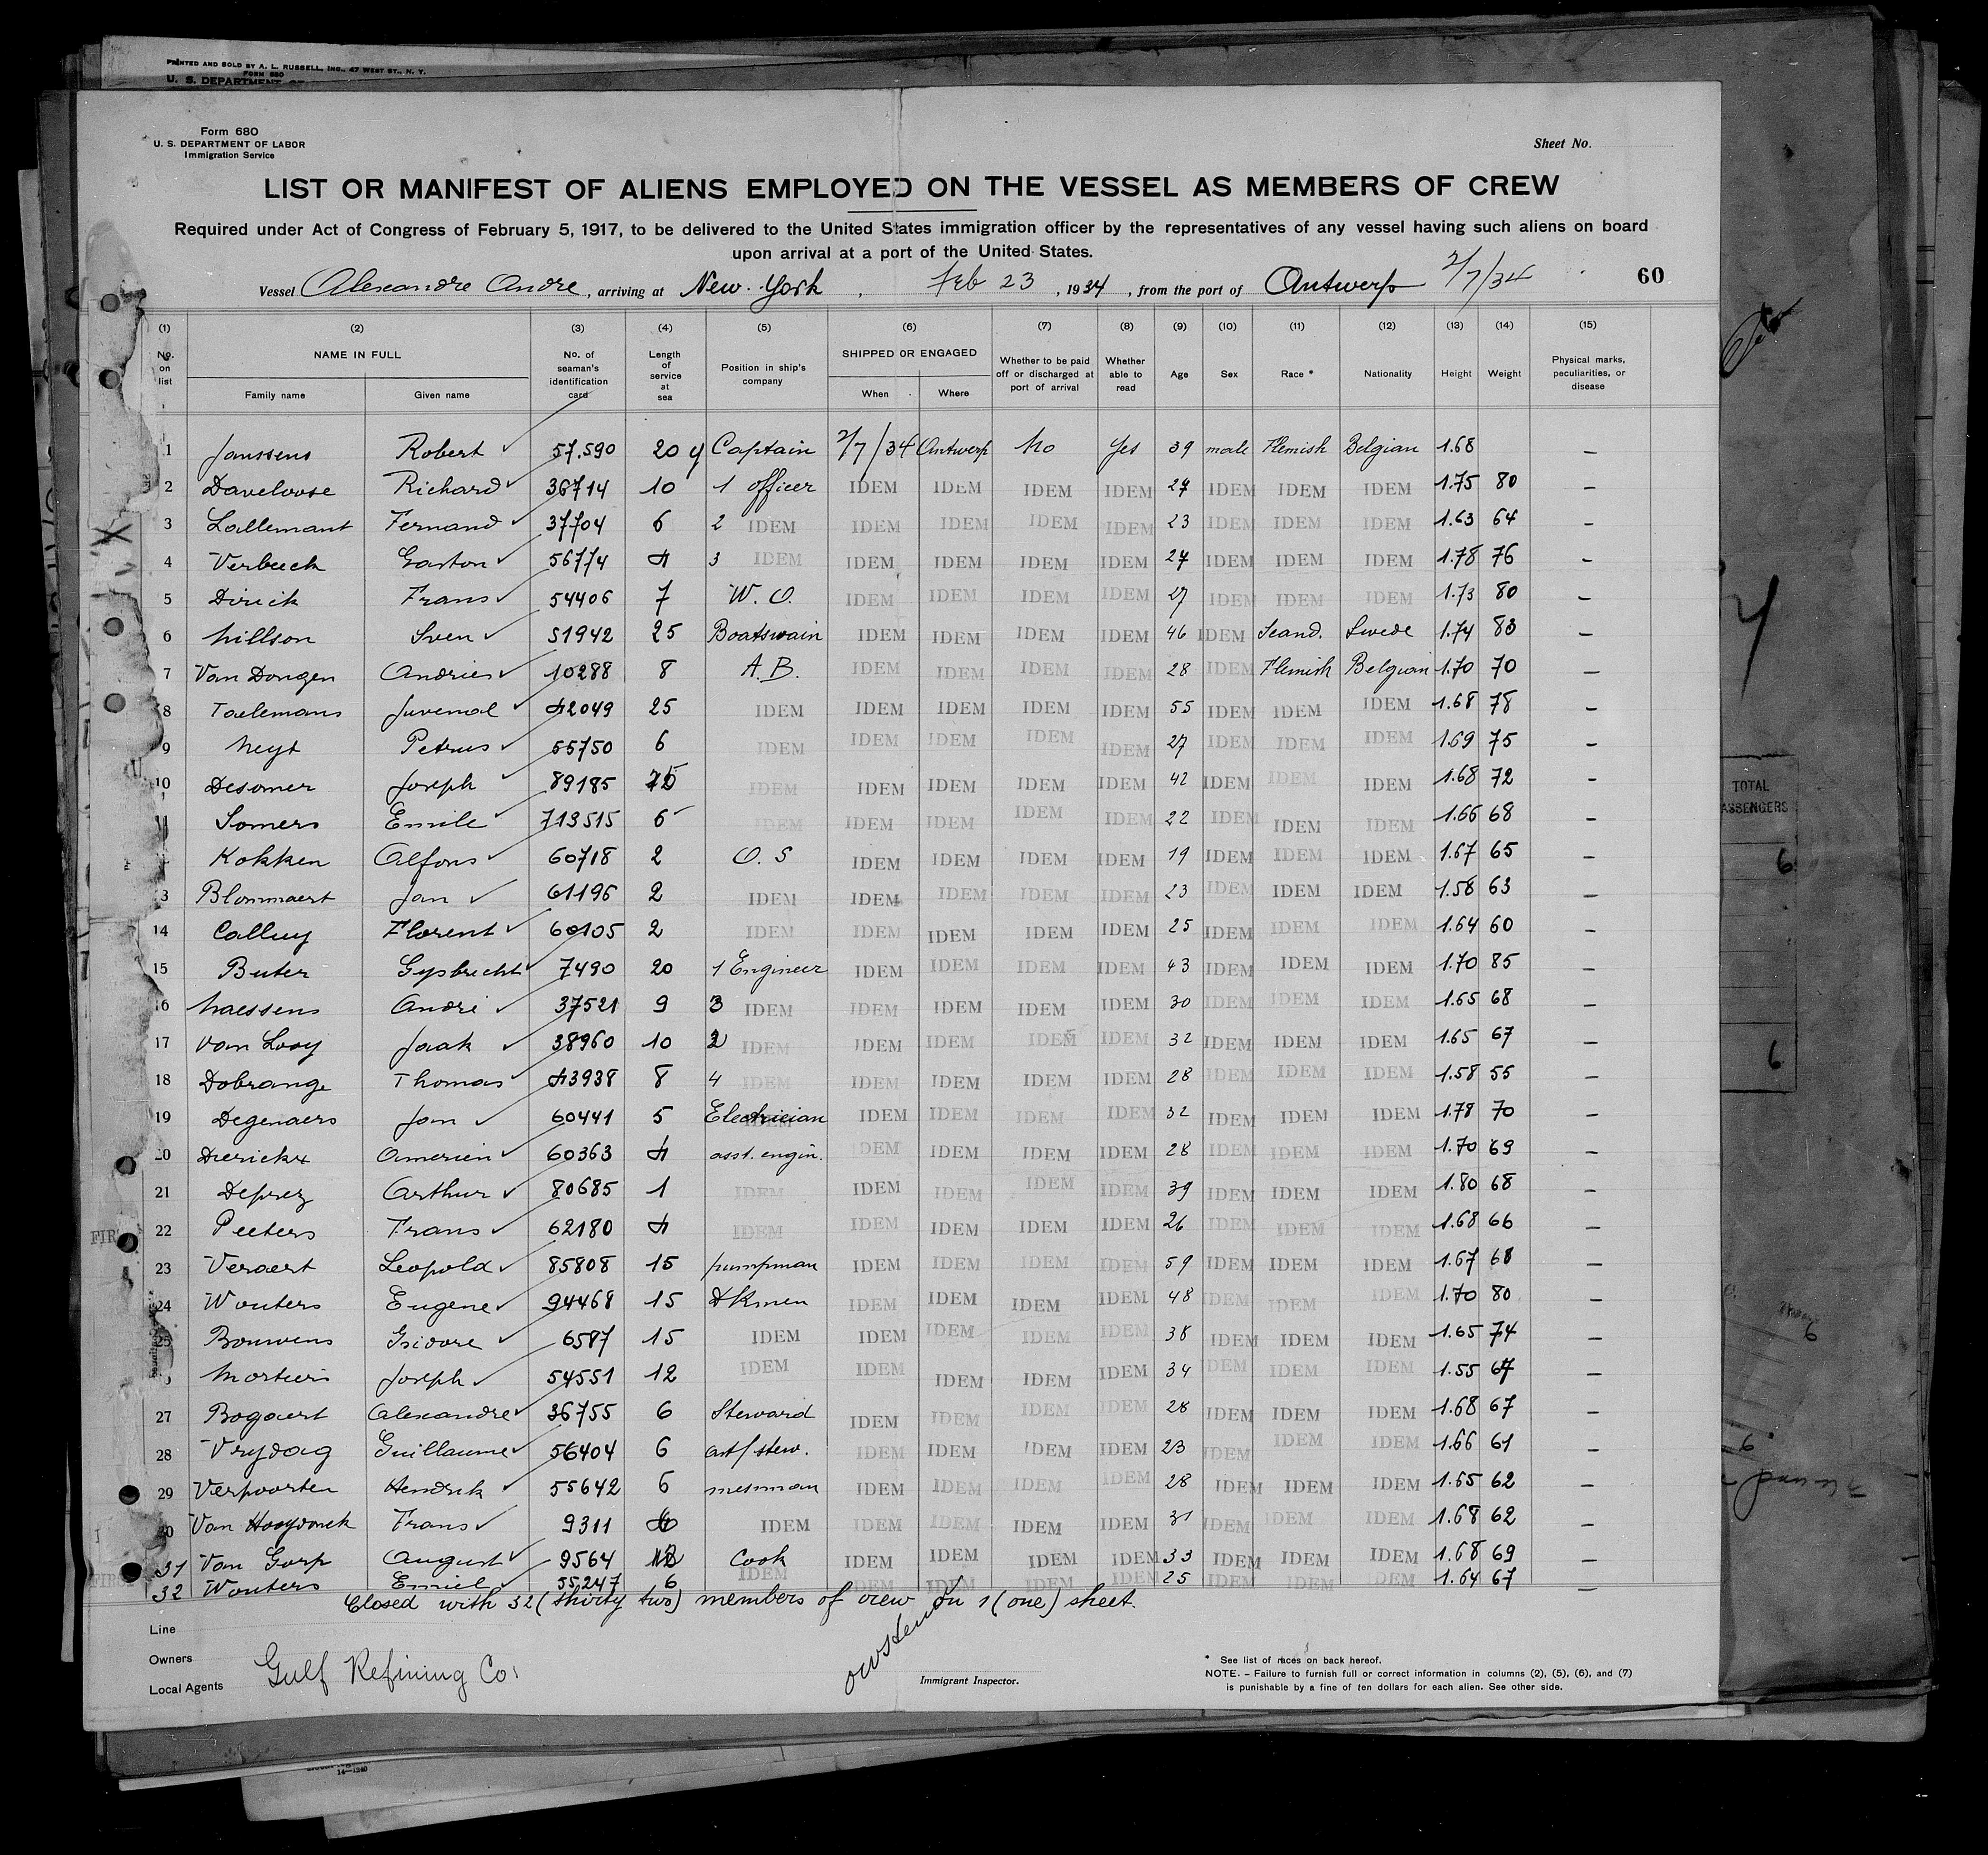 PRINTED AND SOLD BY A. L. RUSSELL, INC., 47 WEST ST., N. Y.
FORM 680
U. S. DEPARTMENT OF
Form 680
U. S. DEPARTMENT OF LABOR
Immigration Service
Sheet No.
LIST OR MANIFEST OF ALIENS EMPLOYED ON THE VESSEL AS MEMBERS OF CREW
Required under Act of Congress of February 5, 1917, to be delivered to the United States immigration officer by the representatives of any vessel having such aliens on board
upon arrival at a port of the United States.
Vessel Alexandre Andre, arriving at New-York, Feb 23, 1934, from the port of Antwerp 2/7/34 60
(1) (2) (3) (4) (5) (6) (7) (8) (9) (10) (11) (12) (13) (14) (15)
No. on list NAME IN FULL Family name Given name No. of seaman's identification card Length of service at sea Position in ship's company SHIPPED OR ENGAGED When Where Whether to be paid off or discharged at port of arrival Whether able to read Age Sex Race * Nationality Height Weight Physical marks, peculiarities, or disease
1 Janssens Robert 57.590 20 y Captain 2/7/34 Antwerp No Yes 39 male Flemish Belgian 1.68 —
2 Daveloose Richard 36714 10 1 officer IDEM IDEM IDEM IDEM 27 IDEM IDEM IDEM 1.75 80 —
3 Lallemant Fernand 37704 6 2 IDEM IDEM IDEM IDEM IDEM 23 IDEM IDEM IDEM 1.63 64 —
4 Verbeeck Gaston 56774 4 3 IDEM IDEM IDEM IDEM IDEM 27 IDEM IDEM IDEM 1.78 76 —
5 Dirick Frans 54406 7 W. O. IDEM IDEM IDEM IDEM 27 IDEM IDEM IDEM 1.73 80 —
6 Nillson Sven 51942 25 Boatswain IDEM IDEM IDEM IDEM 46 IDEM Scand. Swede 1.74 83 —
7 Van Dongen Andries 10288 8 A.B. IDEM IDEM IDEM IDEM 28 IDEM Flemish Belgian 1.70 70 —
8 Taelemans Juvenal 42049 25 IDEM IDEM IDEM IDEM IDEM 55 IDEM IDEM IDEM 1.68 78 —
9 Neyt Petrus 55750 6 IDEM IDEM IDEM IDEM IDEM 27 IDEM IDEM IDEM 1.69 75 —
10 Desomer Joseph 89185 IDEM IDEM IDEM IDEM IDEM 42 IDEM IDEM IDEM 1.68 72 —
Somers Emile 713515 6 IDEM IDEM IDEM IDEM IDEM 22 IDEM IDEM IDEM 1.66 68 —
Kokken Alfons 60718 2 O. S IDEM IDEM IDEM IDEM 19 IDEM IDEM IDEM 1.67 65 —
3 Blommaert Jan 61196 2 IDEM IDEM IDEM IDEM IDEM 23 IDEM IDEM IDEM 1.58 63 —
14 Calluy Florent 60105 2 IDEM IDEM IDEM IDEM IDEM 25 IDEM IDEM IDEM 1.64 60 —
15 Buter Gysbrecht 7490 20 1 Engineer IDEM IDEM IDEM IDEM 43 IDEM IDEM IDEM 1.70 85 —
6 Naessens André 37521 9 3 IDEM IDEM IDEM IDEM IDEM 30 IDEM IDEM IDEM 1.65 68 —
17 Van Looy Jaak 38960 10 2 IDEM IDEM IDEM IDEM IDEM 32 IDEM IDEM IDEM 1.65 67 —
18 Dobrange Thomas 43938 8 4 IDEM IDEM IDEM IDEM IDEM 28 IDEM IDEM IDEM 1.58 55 —
19 Degenaers Jan 60441 5 Electrician IDEM IDEM IDEM IDEM 32 IDEM IDEM IDEM 1.78 70 —
20 Dierickx Omerien 60363 4 asst. engin. IDEM IDEM IDEM IDEM 28 IDEM IDEM IDEM 1.70 69 —
21 Deprez Arthur 80685 1 IDEM IDEM IDEM IDEM IDEM 39 IDEM IDEM IDEM 1.80 68 —
22 Peeters Frans 62180 4 IDEM IDEM IDEM IDEM IDEM 26 IDEM IDEM IDEM 1.68 66 —
23 Veraert Leopold 85808 15 pumpman IDEM IDEM IDEM IDEM 59 IDEM IDEM IDEM 1.67 68 —
24 Wouters Eugene 94468 15 dkmen IDEM IDEM IDEM IDEM 48 IDEM IDEM IDEM 1.70 80 —
25 Bouwens Isidore 6587 15 IDEM IDEM IDEM IDEM IDEM 38 IDEM IDEM IDEM 1.65 74 —
Joseph 54551 12 IDEM IDEM IDEM IDEM IDEM 34 IDEM IDEM IDEM 1.55 67 —
27 Bogaert Alexandre 36755 6 Steward IDEM IDEM IDEM IDEM 28 IDEM IDEM IDEM 1.68 67 —
28 Vrydag Guillaume 56404 6 ast/stew. IDEM IDEM IDEM IDEM 23 IDEM IDEM IDEM 1.66 61 —
29 Verpoorten Hendrik 55642 6 messman IDEM IDEM IDEM IDEM 28 IDEM IDEM IDEM 1.65 62 —
30 Van Hooydonck Frans 9311 IDEM IDEM IDEM IDEM IDEM 31 IDEM IDEM IDEM 1.68 62 —
31 Van Gorp August 9564 Cook IDEM IDEM IDEM IDEM 33 IDEM IDEM IDEM 1.68 69 —
32 Wouters Emiel 55247 6 IDEM IDEM IDEM IDEM IDEM 25 IDEM IDEM IDEM 1.64 67 —
Closed with 32 (thirty two) members of crew on 1 (one) sheet.
Line
Owners
Local Agents Gulf Refining Co.
Immigrant Inspector.
* See list of races on back hereof.
NOTE. – Failure to furnish full or correct information in columns (2), (5), (6), and (7)
is punishable by a fine of ten dollars for each alien. See other side.
TOTAL
PASSENGERS
6
6
14—1240